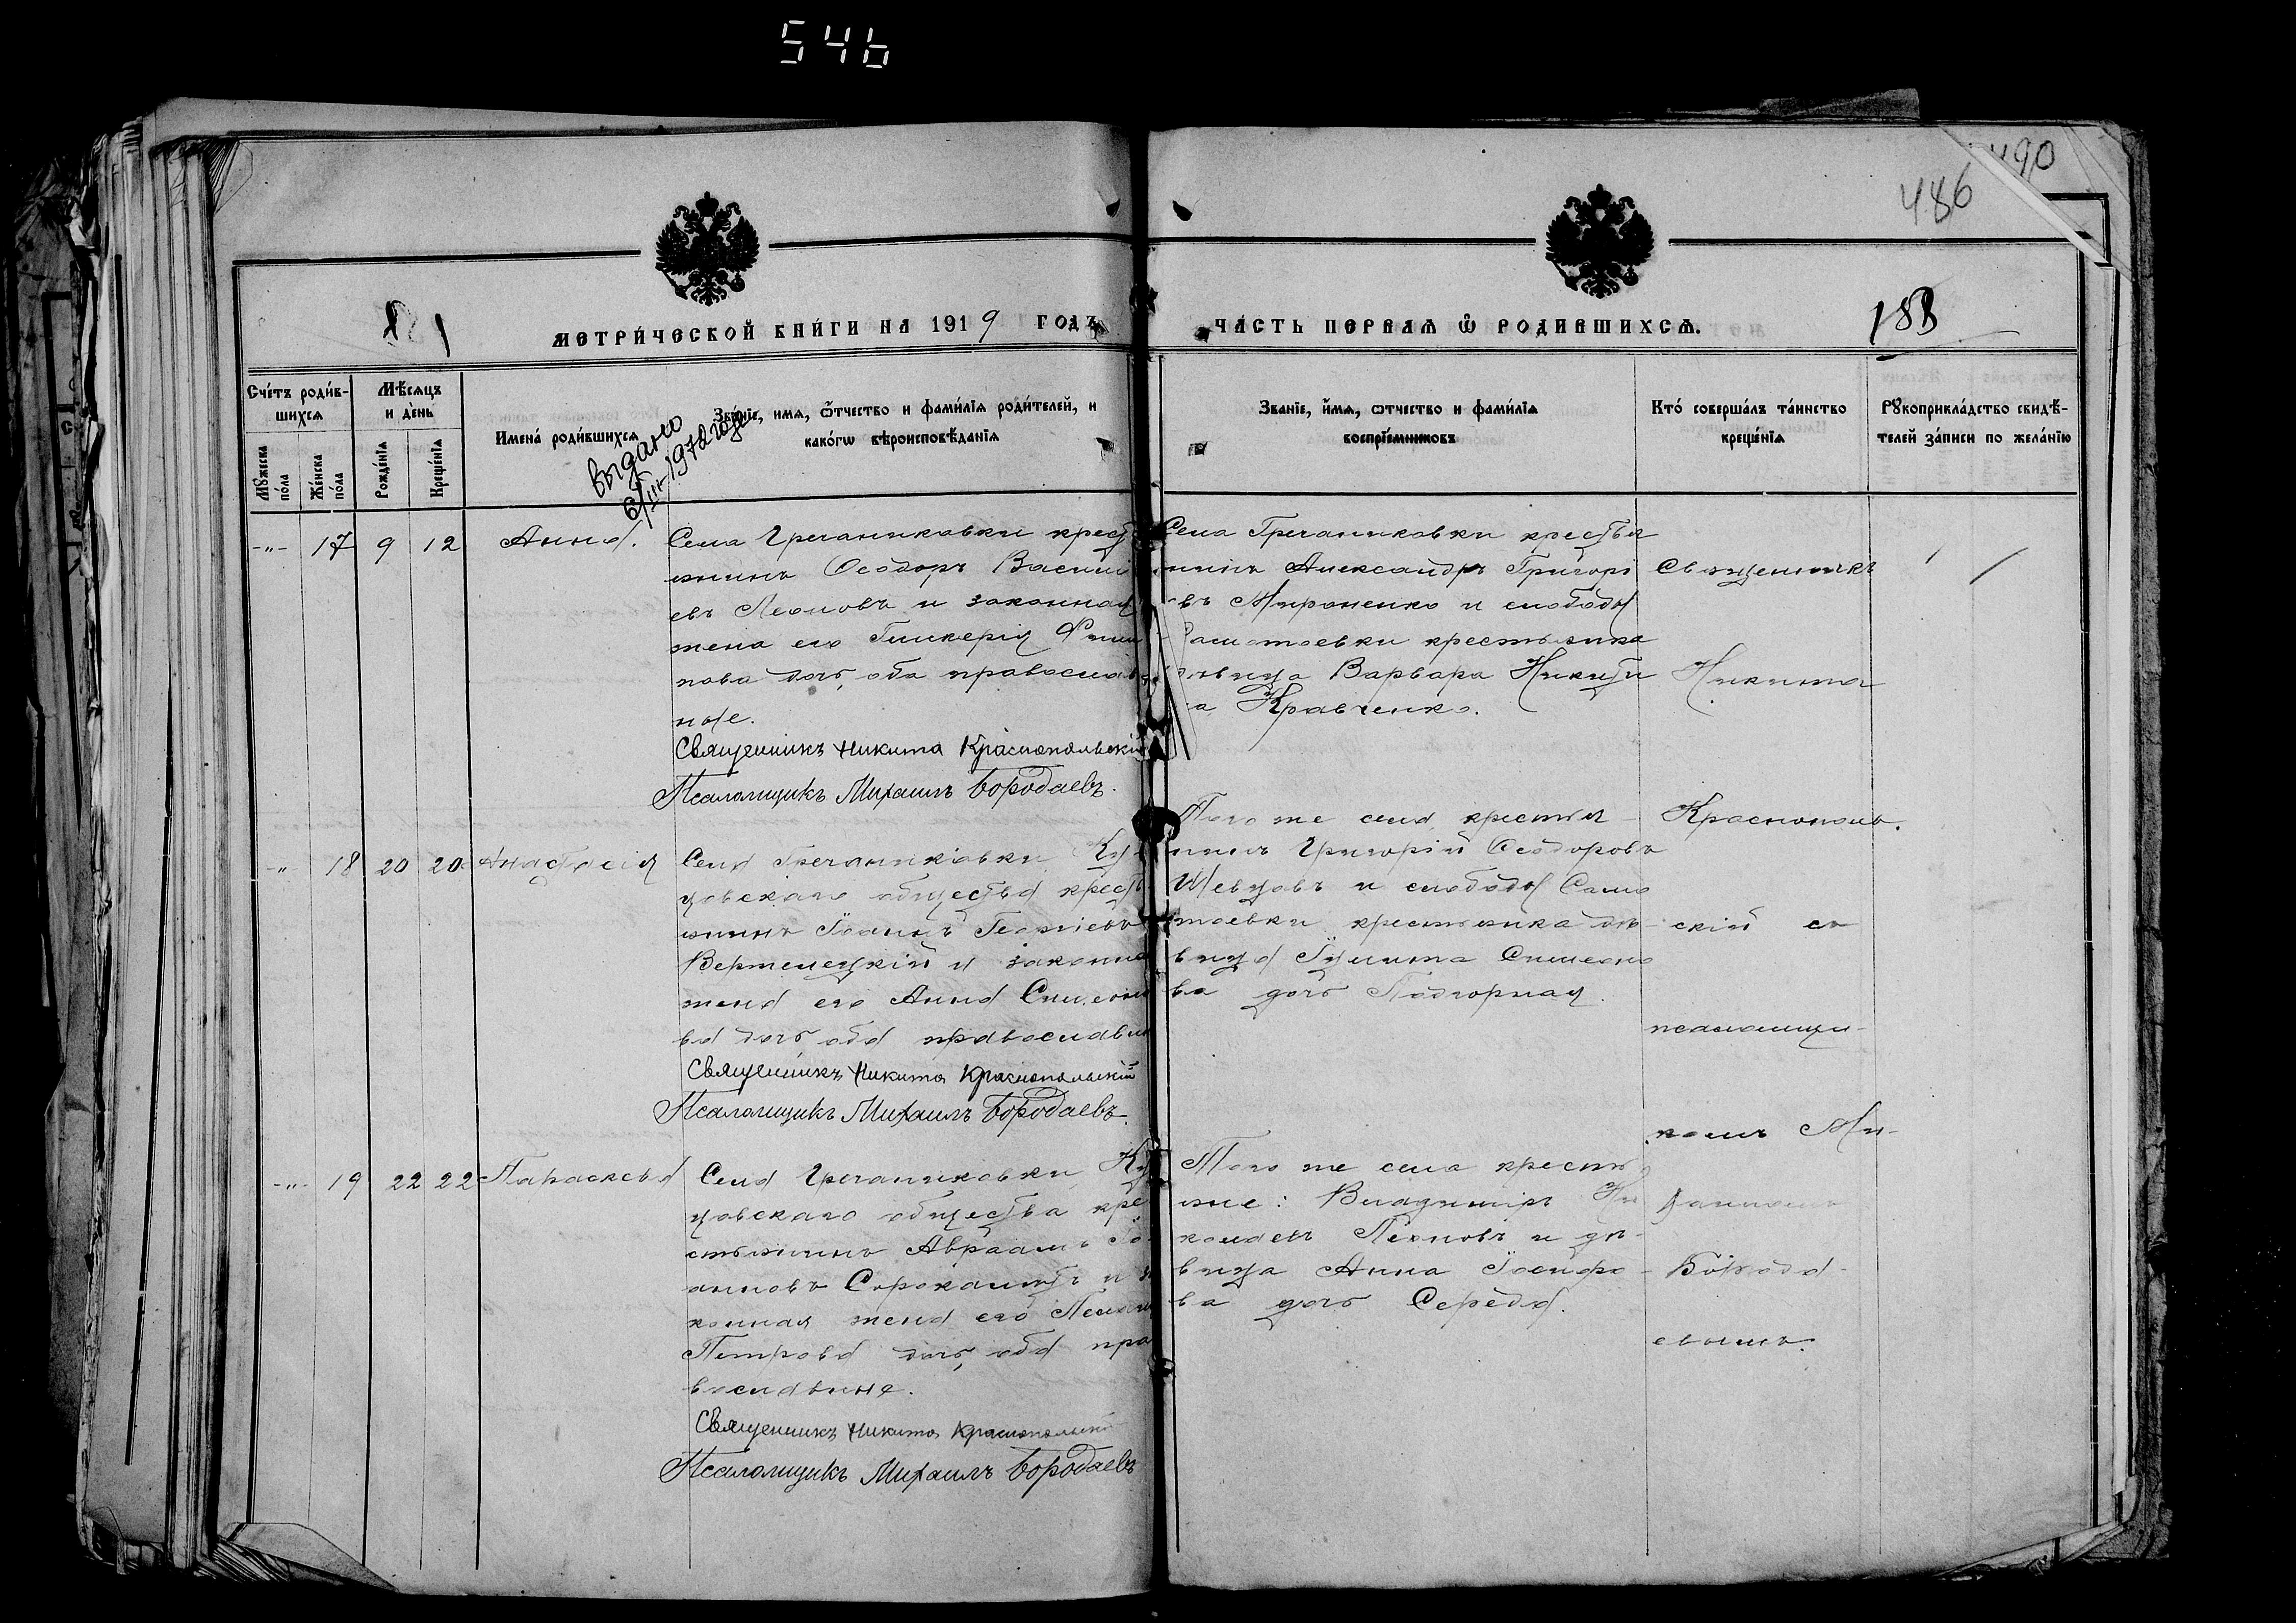 546
490
486
МЕТРИ́ЧЕСКОЙ КНИ́ГИ НА 1919 ГОДЪ
ЧА́СТЬ ПЕРВАѦ Ѿ РОДИВШИХСѦ.
188
Сче́тъ роди́в-
шихсѧ
Мѣ́сѧцъ
и де́нь
Мꙋ́жеска
по́ла
Же́нска
по́ла
Рожде́нїѧ
Креще́нїѧ
Имена̀ роди́вшихсѧ
Зва́нїе, имѧ, ѻ́тчество и фами́лїѧ роди́телей, и
како́гѡ вѣроисповѣ́данїѧ
выдано
6/III-1972 года
Званїе, и́мѧ, ѻтчество и фами́лїѧ
воспрїе́мниковъ
Кто̀ соверша́лъ та́инство
креще́нїѧ
Рꙋкоприкла́дство свидѣ́-
телей за́писи по жела́нїю
-"- 17 9 12 Анна.
Села Гречаниковки крест
янинъ Ѳеодоръ Васили
евъ Леоновъ и законная
жена его Гликерія Фили
пова дочь, оба православ
ные.
Священникъ Никита Краснопольскій
Псаломщикъ Михаилъ Бородаевъ.
Села Гречаниковки крестья
нинъ Александръ Григорі
евъ Мироненко и слободы
Самотоевки крестьянка
дѣвица Варвара Никити
на Кравченко.
Священникъ
Никита
Краснополь.
-"- 18 20 20 Анастасія
Села Гречаниковки
цовскаго общества крест
янинъ Іоаннъ Георгіевъ
Вертелецкій и законна
жена его Анна Симеоно
ва дочь оба православн
Священникъ Никита Краснопольскій
Псаломщикъ Михаилъ Бородаевъ.
Того же села крестья
нинъ Григорій Ѳеодоровъ
Шевцовъ и слободы Само
тоевки крестьянка дѣ-
вица Іулитта Симеоно
ва дочь Подгорная.
скій съ
псаломщи-
комъ Ми-
-"- 19 22 22 Параскева
Села Гречаниковки
цовскаго общества кре
стьянинъ Авраамъ Іо
анновъ Сорокалитъ и за
конная жена его Пелаги
Петрова дочь, оба пра
вославные.
Священникъ Никита Краснопольскій
Псаломщикъ Михаилъ Бородаевъ
Того же села крестья
яне: Владимиръ Ни
колаевъ Леоновъ и дѣ-
вица Анна Іосифо-
ва дочь Середа.
хаиломъ
Борода-
евымъ.